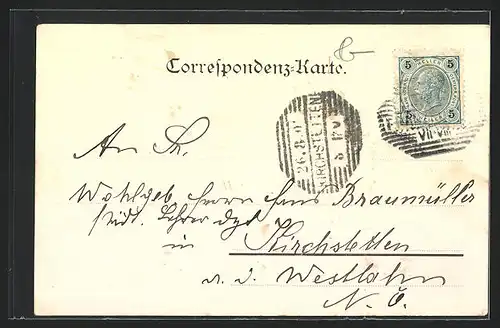 Correspondenz-Karte.
5 HELLER 5
5 5
26.8.0
KIRCHSTETTEN
An Sr.
Wohlgeb Herrn Hans Braumüller
städt. Lehrer dzt
in
Kirchstetten
a. d. Westbahn
N. Ö.